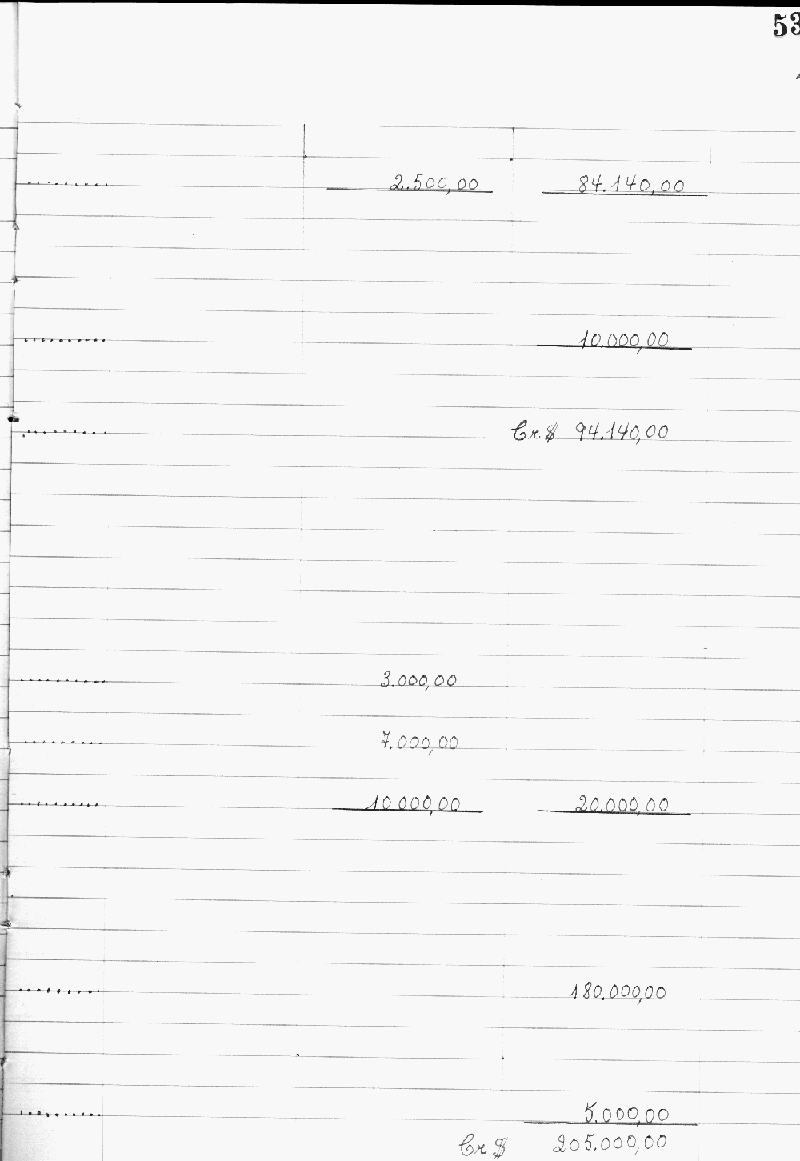 53
2.500,00 84.140,00
10.000,00
Cr.$ 94.140,00
3.000,00
7.000,00
10.000,00 20.000,00
180.000,00
5.000,00
Cr$ 205.000,00